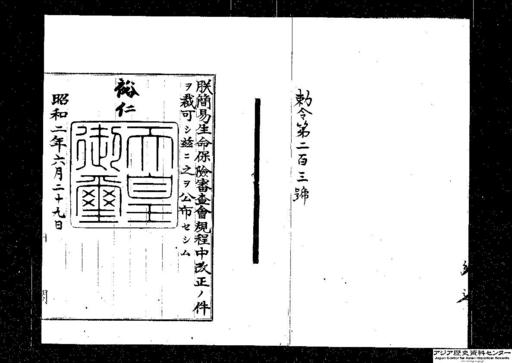 勅令第二百三號
朕簡易生命保險審査會規程中改正ノ件
ヲ裁可シ茲ニ之ヲ公布セシム
裕仁
天皇
御璽
昭和二年六月二十九日
アジア歴史資料センター
Japan Center for Asian Historical Records